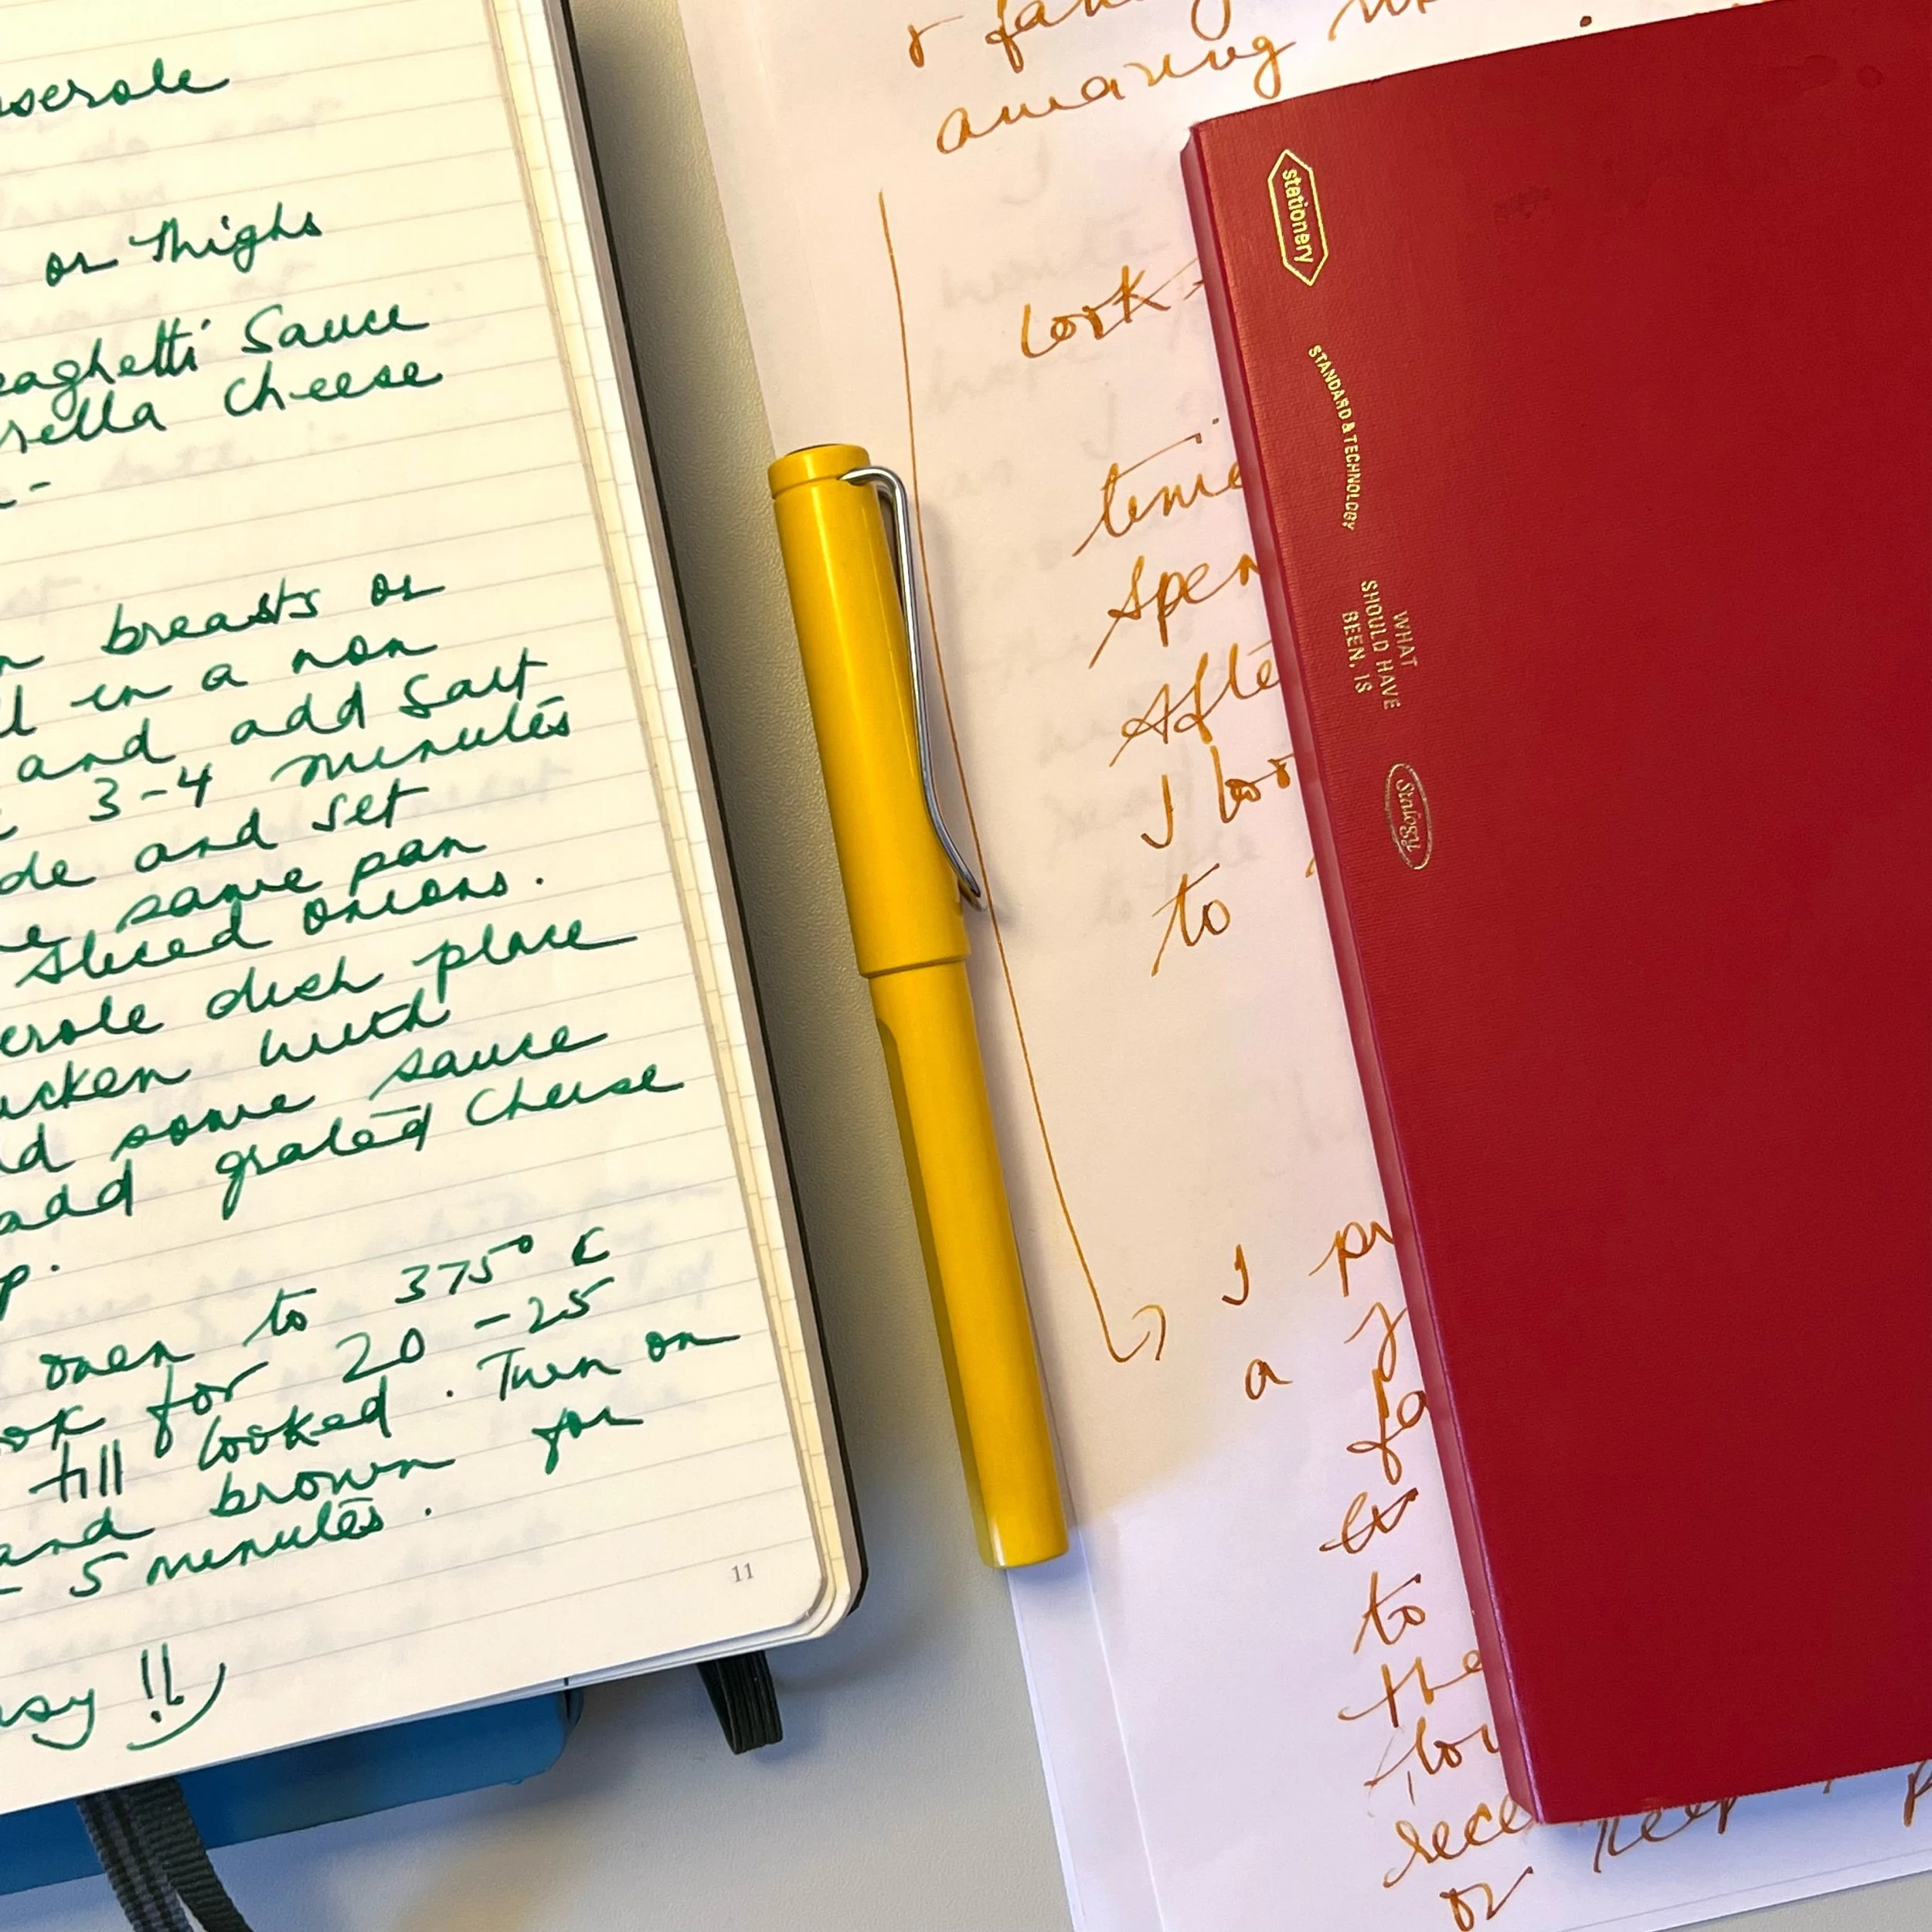 serole
or Thighs
aghetti Sauce
rella Cheese
breasts or
in a non
and add Salt
3-4 minutes
de and set
same pan
sliced onions.
erole dish place
cken with
d some sauce
add grated Cheese
p.
oven to 375°
ok for 20-25
till cooked. Turn on
and brown for
- 5 minutes.
sy !!
11
amazing
look
time
spen
Afte
I
to
I pr
a y
fa
to
the
rece keep
or
stationery
STANDARD & TECHNOLOGY
WHAT
SHOULD HAVE
BEEN, IS
Stalogy